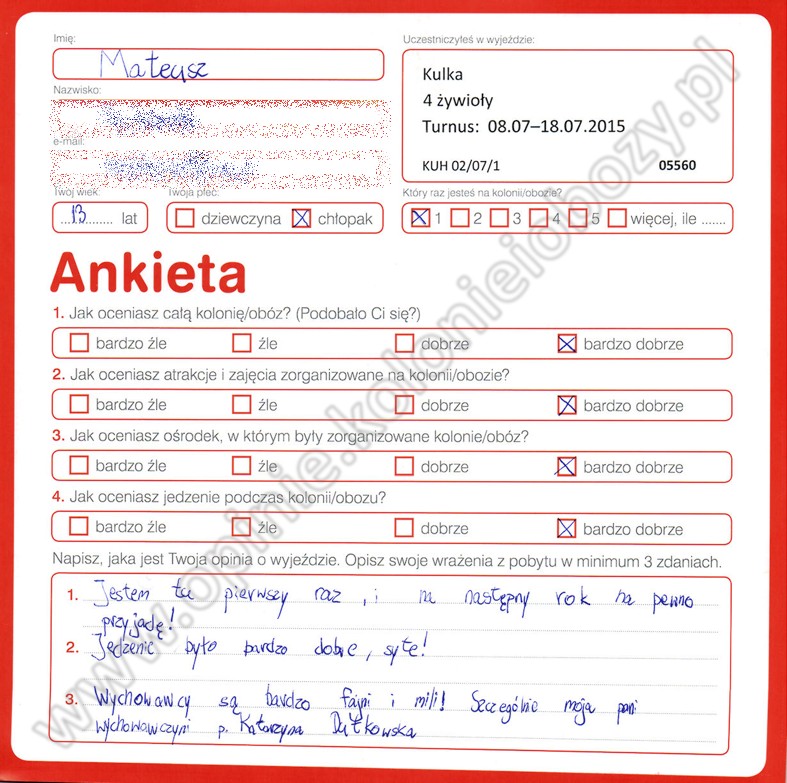 Imię:
Mateusz
Uczestniczyłeś w wyjeździe:
Kulka
4 żywioły
Turnus: 08.07–18.07.2015
KUH 02/07/1 05560
Nazwisko:
e-mail:
Twój wiek:
13 lat
Twoja płeć:
dziewczyna chłopak
Który raz jesteś na kolonii/obozie?
1 2 3 4 5 więcej, ile .......
Ankieta
1. Jak oceniasz całą kolonię/obóz? (Podobało Ci się?)
bardzo źle źle dobrze bardzo dobrze
2. Jak oceniasz atrakcje i zajęcia zorganizowane na kolonii/obozie?
bardzo źle źle dobrze bardzo dobrze
3. Jak oceniasz ośrodek, w którym były zorganizowane kolonie/obóz?
bardzo źle źle dobrze bardzo dobrze
4. Jak oceniasz jedzenie podczas kolonii/obozu?
bardzo źle źle dobrze bardzo dobrze
Napisz, jaka jest Twoja opinia o wyjeździe. Opisz swoje wrażenia z pobytu w minimum 3 zdaniach.
1. Jestem tu pierwszy raz, i na następny rok na pewno
przyjadę!
2. Jedzenie było bardzo dobre, syte!
3. Wychowawcy są bardzo fajni i mili! Szczególnie moja pani
wychowawczyni p. Katarzyna Dutkowska
www.opinie.kolonieiobozy.pl